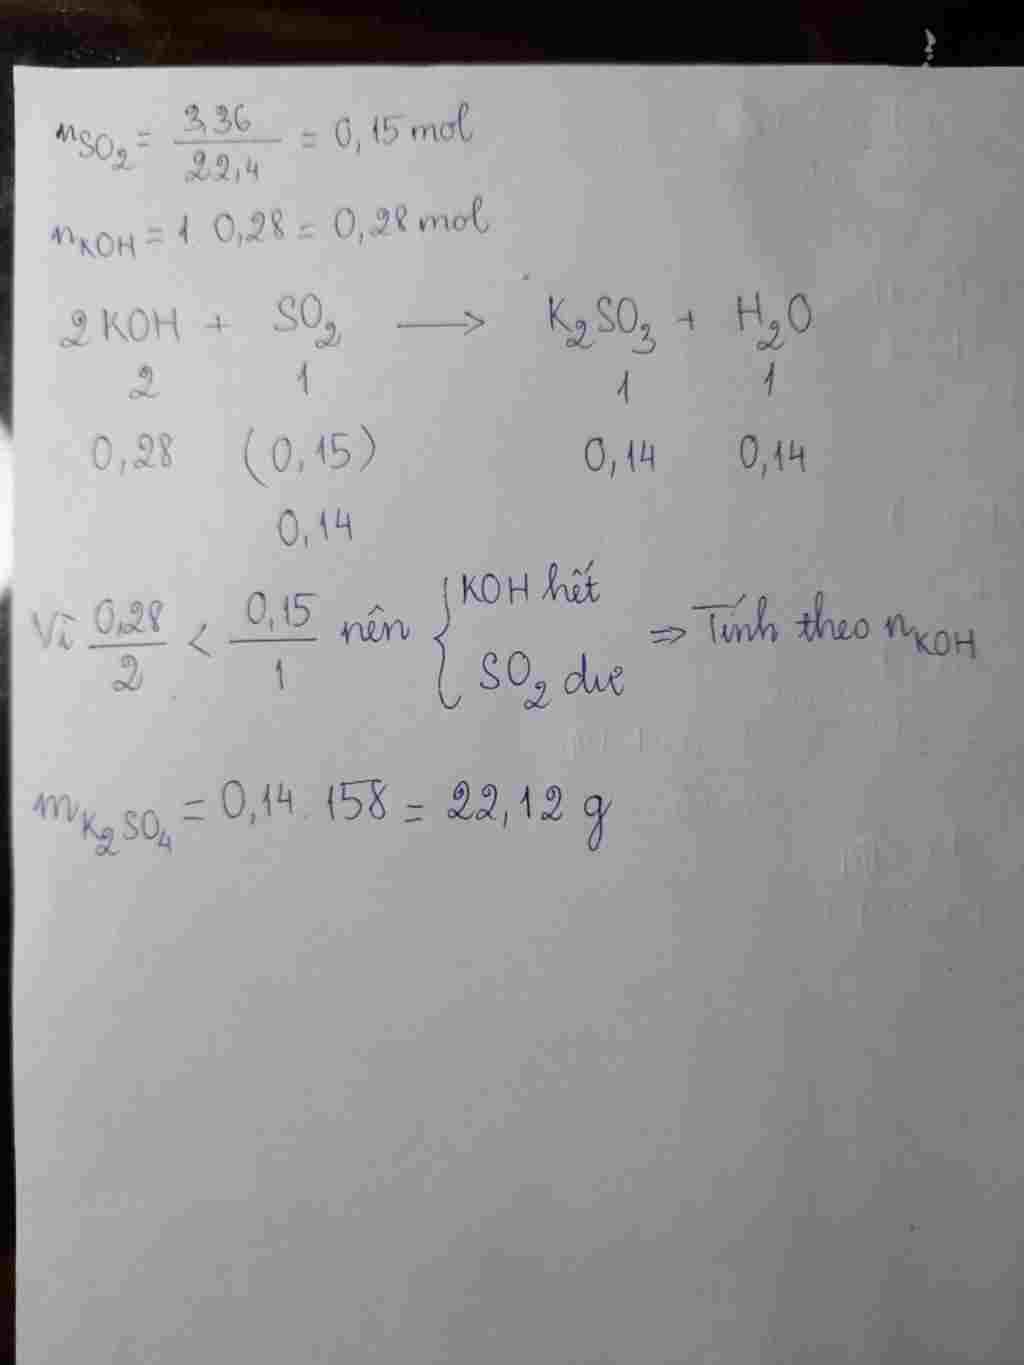 nSO2 = 3,36 / 22,4 = 0,15 mol
nKOH = 1 0,28 = 0,28 mol
2KOH + SO2 → K2SO3 + H2O
2 1 1 1
0,28 (0,15) 0,14 0,14
0,14
Vì 0,28/2 < 0,15/1 nên { KOH hết
SO2 dư ⇒ Tính theo nKOH
mK2SO4 = 0,14 . 158 = 22,12 g